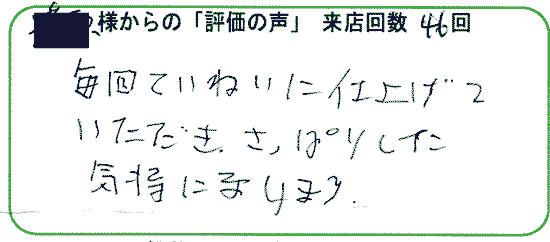 様からの「評価の声」 来店回数 46回
毎回ていねいに仕上げて
いただき、さっぱりした
気持になります。